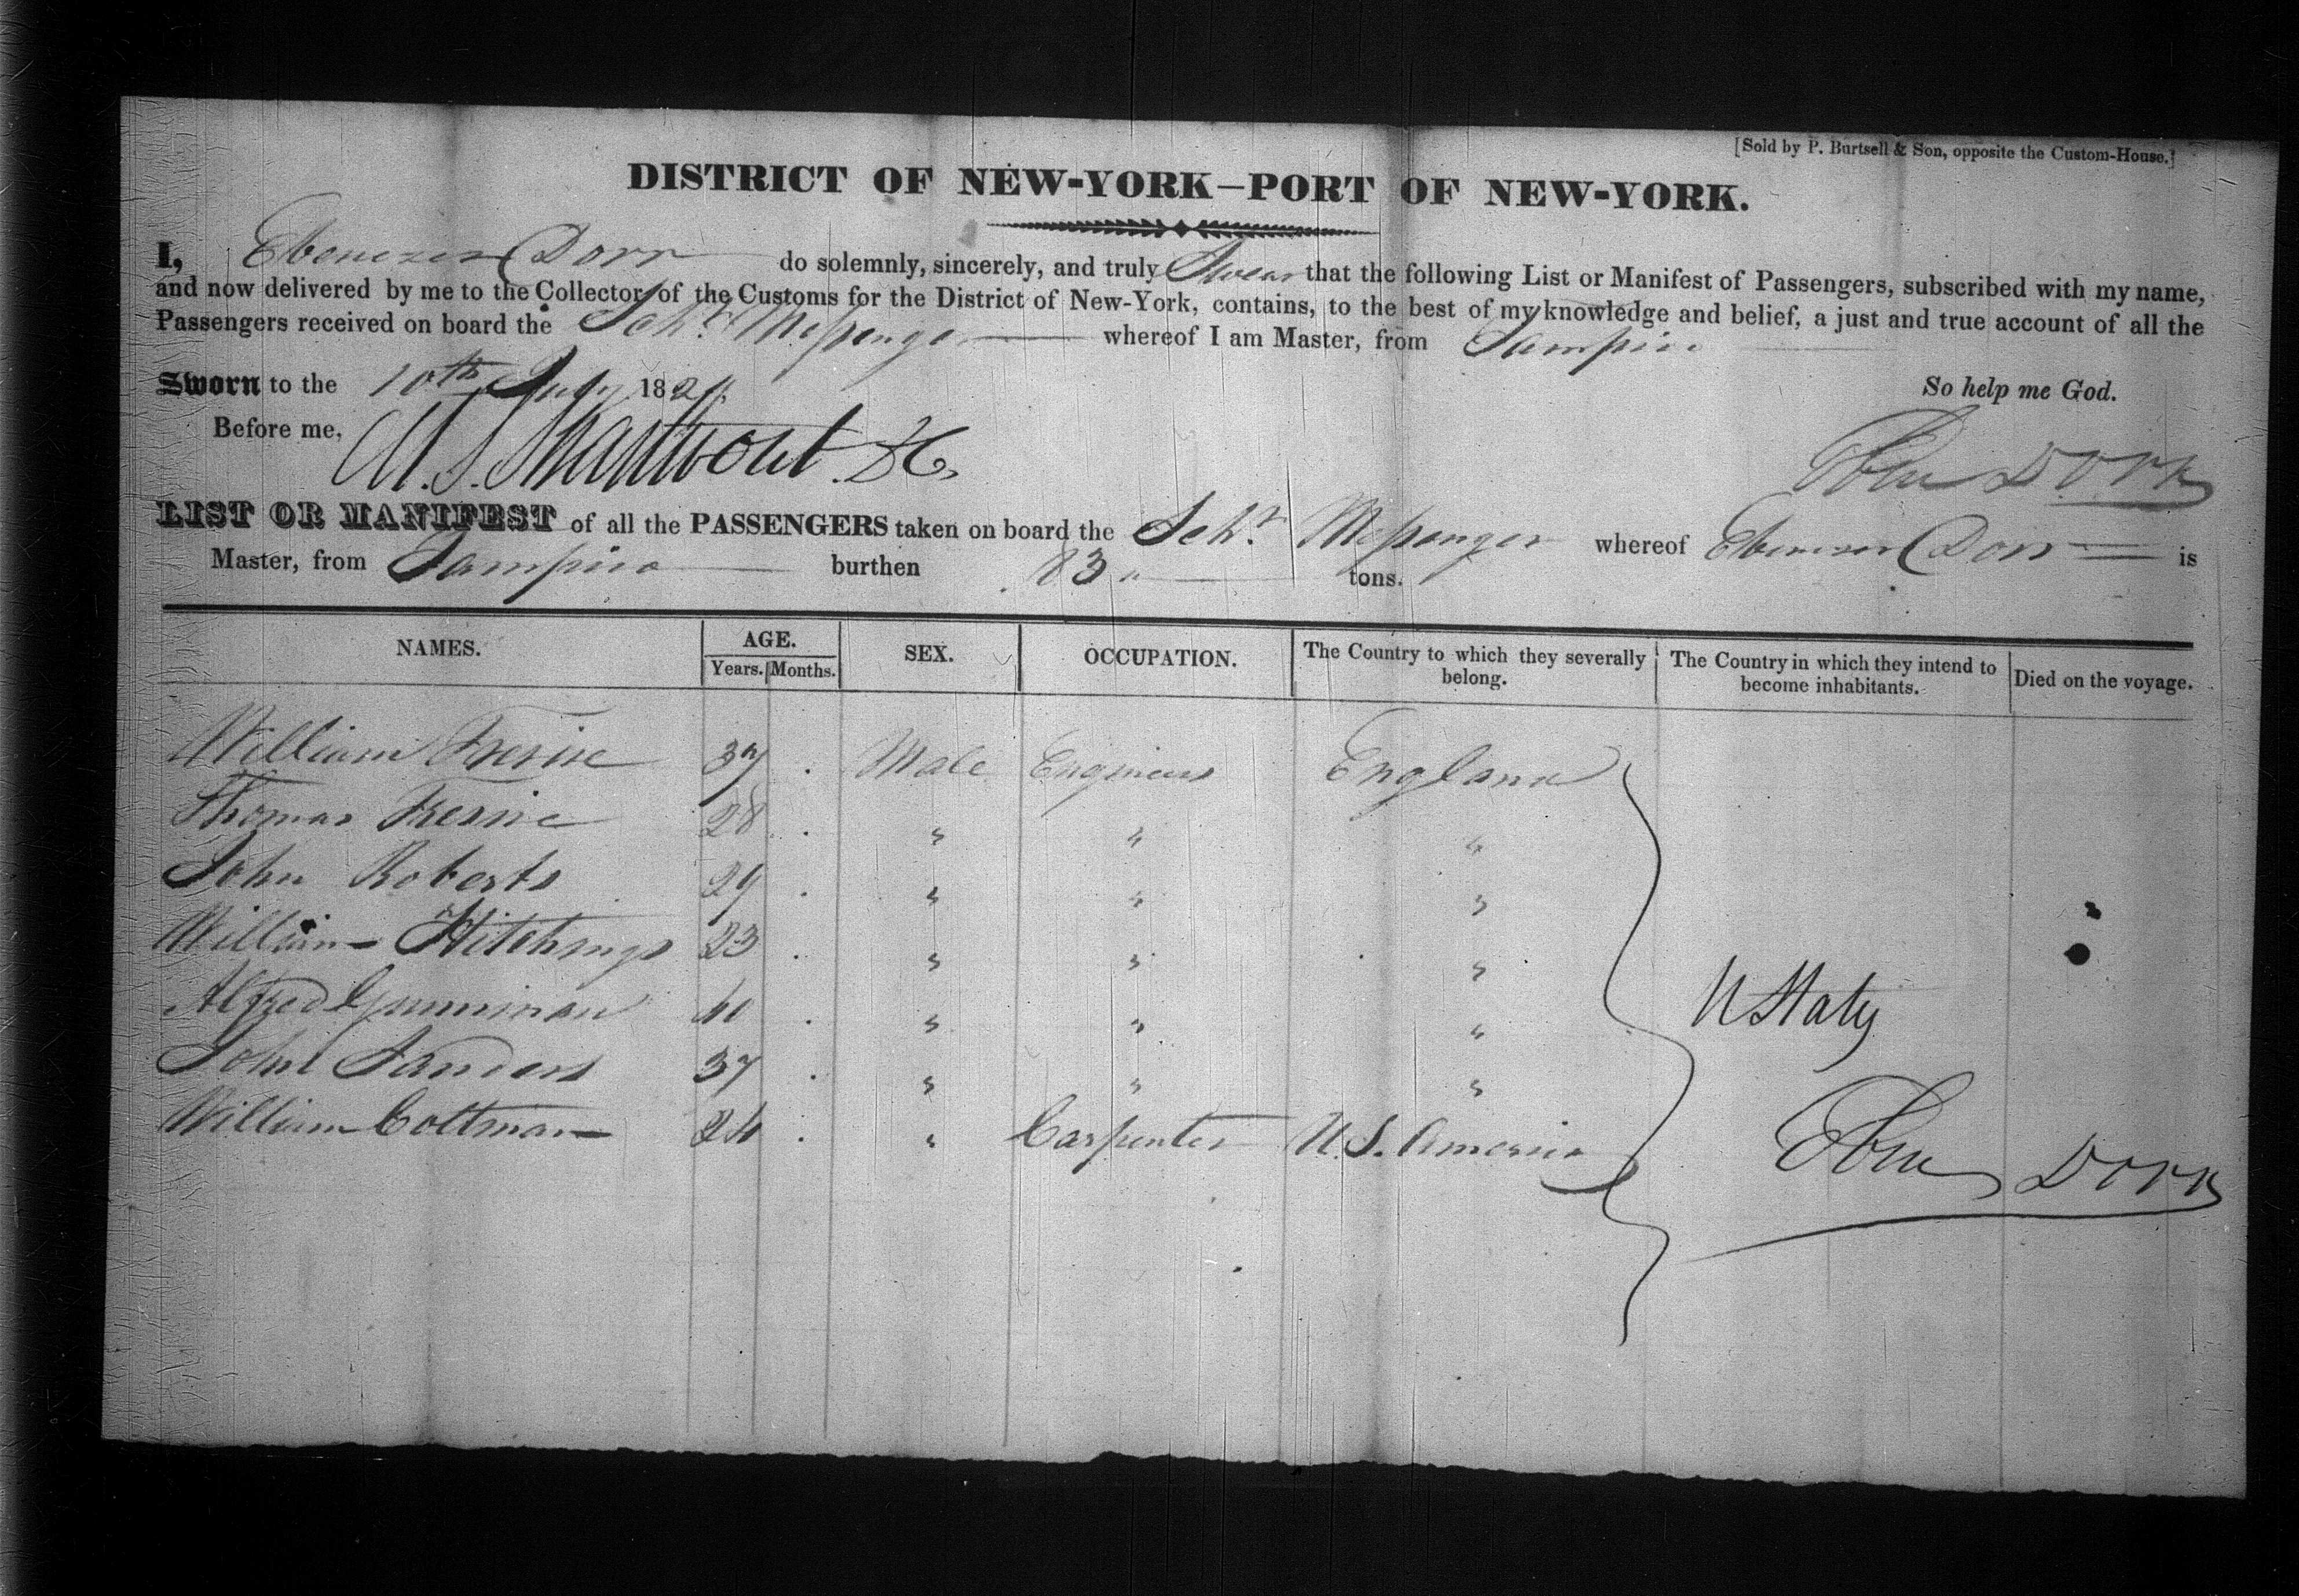 [Sold by P. Burtsell & Son, opposite the Custom-House.]
DISTRICT OF NEW-YORK—PORT OF NEW-YORK.
I, Ebenezer Dorr do solemnly, sincerely, and truly Swear that the following List or Manifest of Passengers, subscribed with my name,
and now delivered by me to the Collector of the Customs for the District of New-York, contains, to the best of my knowledge and belief, a just and true account of all the
Passengers received on board the Schr Messenger whereof I am Master, from Tampico
Sworn to the 10th July 182
So help me God.
Before me,
Eben Dorr
LIST OR MANIFEST of all the PASSENGERS taken on board the Schr. Messenger whereof Ebenezer Dorr is
Master, from Tampico burthen 83 tons.
NAMES. AGE. SEX. OCCUPATION. The Country to which they severally belong. The Country in which they intend to become inhabitants. Died on the voyage.
Years. Months.
William 37 Male Engineers England
Thomas 28 " " "
John Roberts 29 " " "
William Hitchings 23 " " "
Alfred 40 " " "
John Sanders 37 " " "
William Coltman 24 " Carpenter U.S. America
U States
Eben Dorr